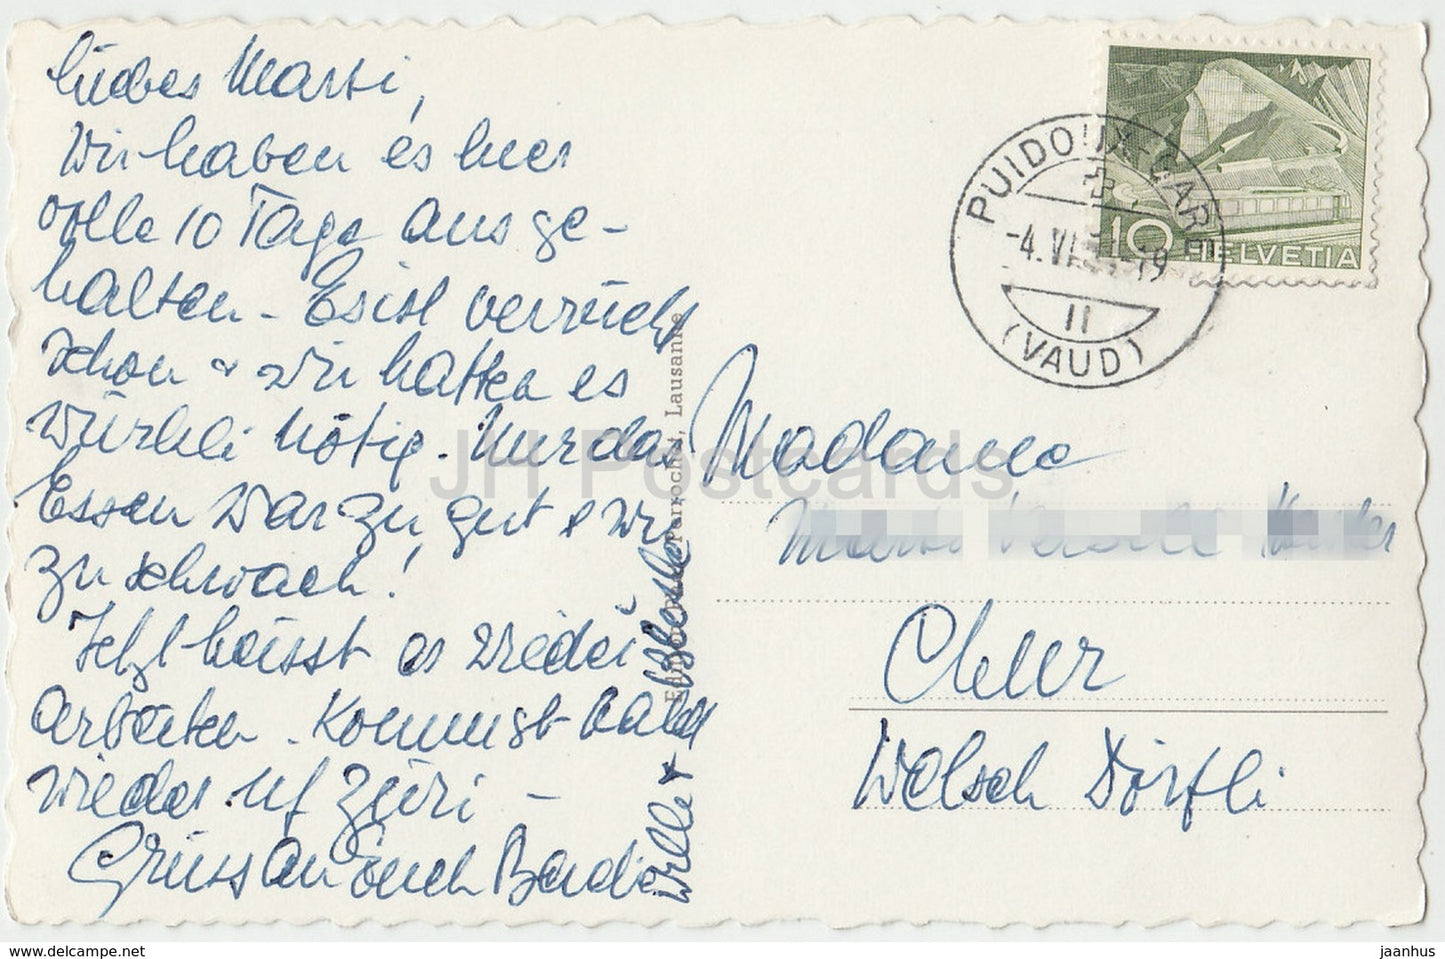 Liebes Marti,
Wir haben es hier
volle 10 Tage ausge-
halten - Es ist verrückt
schon & wir hatten es
würkli nötig. Nur das
Essen war zu gut & wir
zu schwach!
Jetzt heisst es wieder
arbeiten. Kommst bald
wieder uf Züri -
Grüss an Euch Beidi
Willi &
Edition Perrochet, Lausanne
PUIDOUX-GARE
-4. VI. -19
II
(VAUD)
10 HELVETIA
Madame
Chur
Welsch Dörfli
JH Postcards
delcampe.net
jaanhus